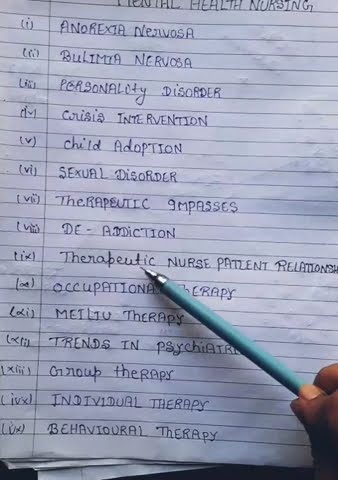 MENTAL HEALTH NURSING
(i) ANOREXIA Nervosa
(ii) BULIMIA NERVOSA
(iii) PERSONALity DISORDER
iv) Crisis INTERVENTION
(v) child AdoPTION
(vi) SEXUAL DISORDER
(vii) TheRAPEUTIC IMPASSES
(viii) DE - ADDICTION
(ix) Therapeutic NURSE PATIENT RELATIONSH
(x) OCCUPATIONAL THERAPY
(xi) MEILIU THERAPY
(xii) TRENDS IN PsychiATR
(xiii) Group theRAPY
(ivx) INDIVIDUAL THERAPY
(vx) BEHAVIOURAL THERAPY